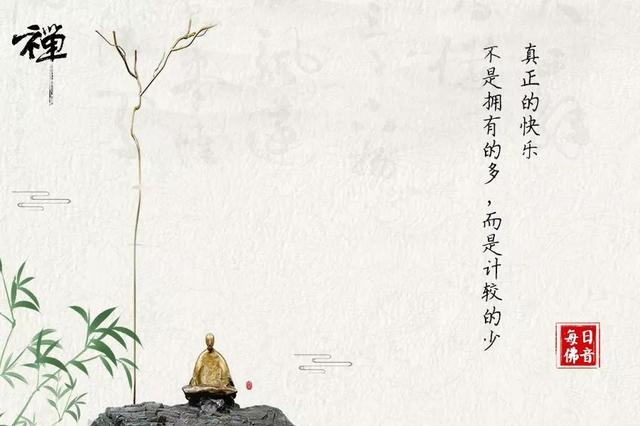 禅
真正的快乐
不是拥有的多，而是计较的少
每日
佛音